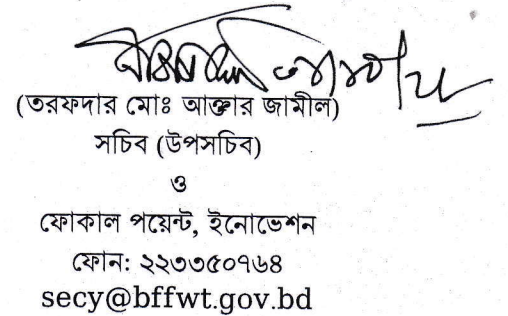 (তরফদার মোঃ আক্তার জামীল)
সচিব (উপসচিব)
ও
ফোকাল পয়েন্ট, ইনোভেশন
ফোন: ২২৩৩৫০৭৬৪
secy@bffwt.gov.bd